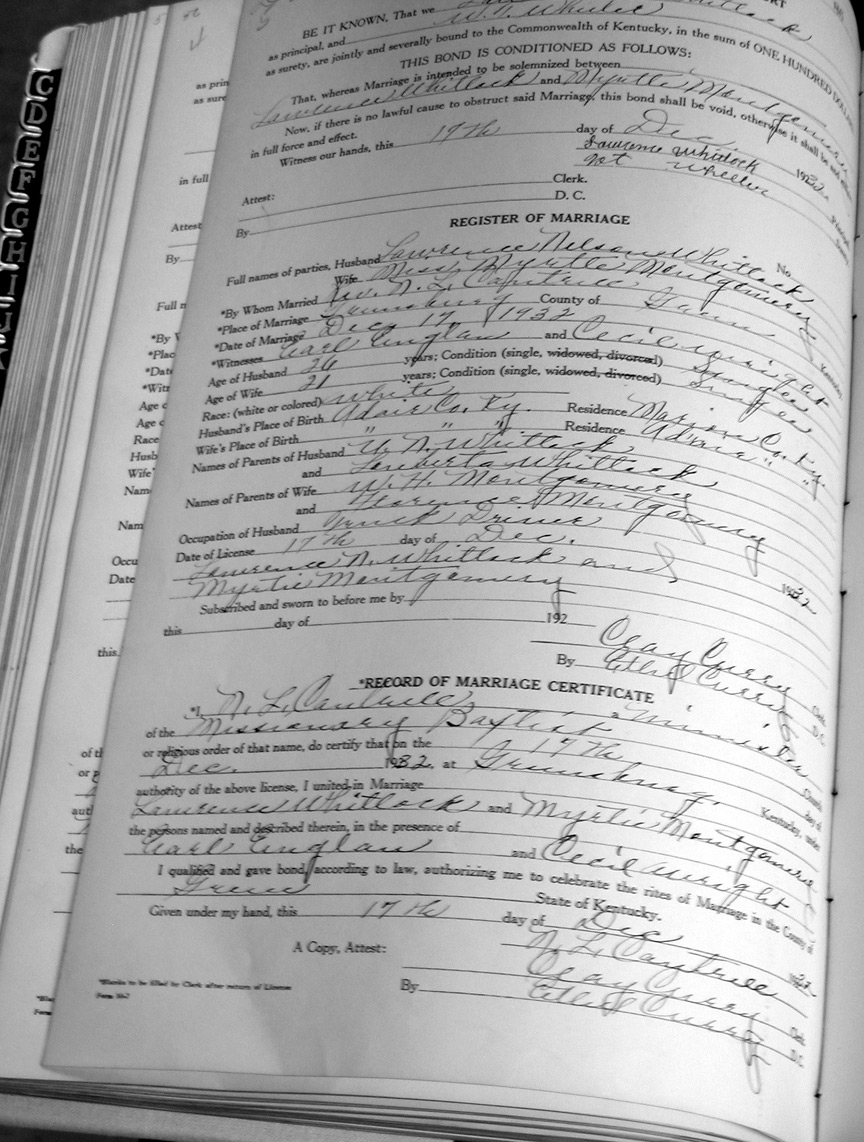 C
D
E
F
G
H
I
J
K
BE IT KNOWN, That we
as principal, and W. T. Wheeler
as surety, are jointly and severally bound to the Commonwealth of Kentucky, in the sum of ONE HUNDRED DOLLARS
THIS BOND IS CONDITIONED AS FOLLOWS:
That, whereas Marriage is intended to be solemnized between
Lawrence Whitlock and Myrtle Montgomery
Now, if there is no lawful cause to obstruct said Marriage, this bond shall be void, otherwise it shall be and
in full force and effect.
Witness our hands, this 17th day of Dec. 1932
Lawrence Whitlock
Wheeler
Attest: Clerk.
By D. C.
REGISTER OF MARRIAGE
No.
Full names of parties, Husband Lawrence Nelson Whitlock
Wife Miss Myrtle Montgomery
*By Whom Married N. L. Cantrell
*Place of Marriage Greensburg County of Green
*Date of Marriage Dec 17 1932
*Witnesses Carl Englan and Cecil Wright
Age of Husband 26 years; Condition (single, widowed, divorced) Single
Age of Wife 21 years; Condition (single, widowed, divorced) Single
Race: (white or colored) White
Husband's Place of Birth Adair Co. Ky. Residence Marion Co. Ky.
Wife's Place of Birth " " " Residence Adair " "
Names of Parents of Husband U. N. Whitlock
and Whitlock
Names of Parents of Wife W. H. Montgomery
and Florence Montgomery
Occupation of Husband Truck Driver
Date of License 17th day of Dec. 1932
Lawrence N. Whitlock and
Myrtle Montgomery
Subscribed and sworn to before me by
this day of 192
Clay Curry Clerk
By Ethel Curry D. C.
*RECORD OF MARRIAGE CERTIFICATE
*I, N. L. Cantrell, a Minister
of the Missionary Baptist Church
or religious order of that name, do certify that on the 17th day of
Dec. 1932, at Greensburg, Kentucky, under
authority of the above license, I united in Marriage
Lawrence Whitlock and Myrtle Montgomery
the persons named and described therein, in the presence of
Carl Englan and Cecil Wright
I qualified and gave bond, according to law, authorizing me to celebrate the rites of Marriage in the County of
Green State of Kentucky.
Given under my hand, this 17th day of Dec 1932
N. L. Cantrell
A Copy, Attest: Clay Curry Clerk
By Ethel Curry D. C.
*Blanks to be filled by Clerk after return of License